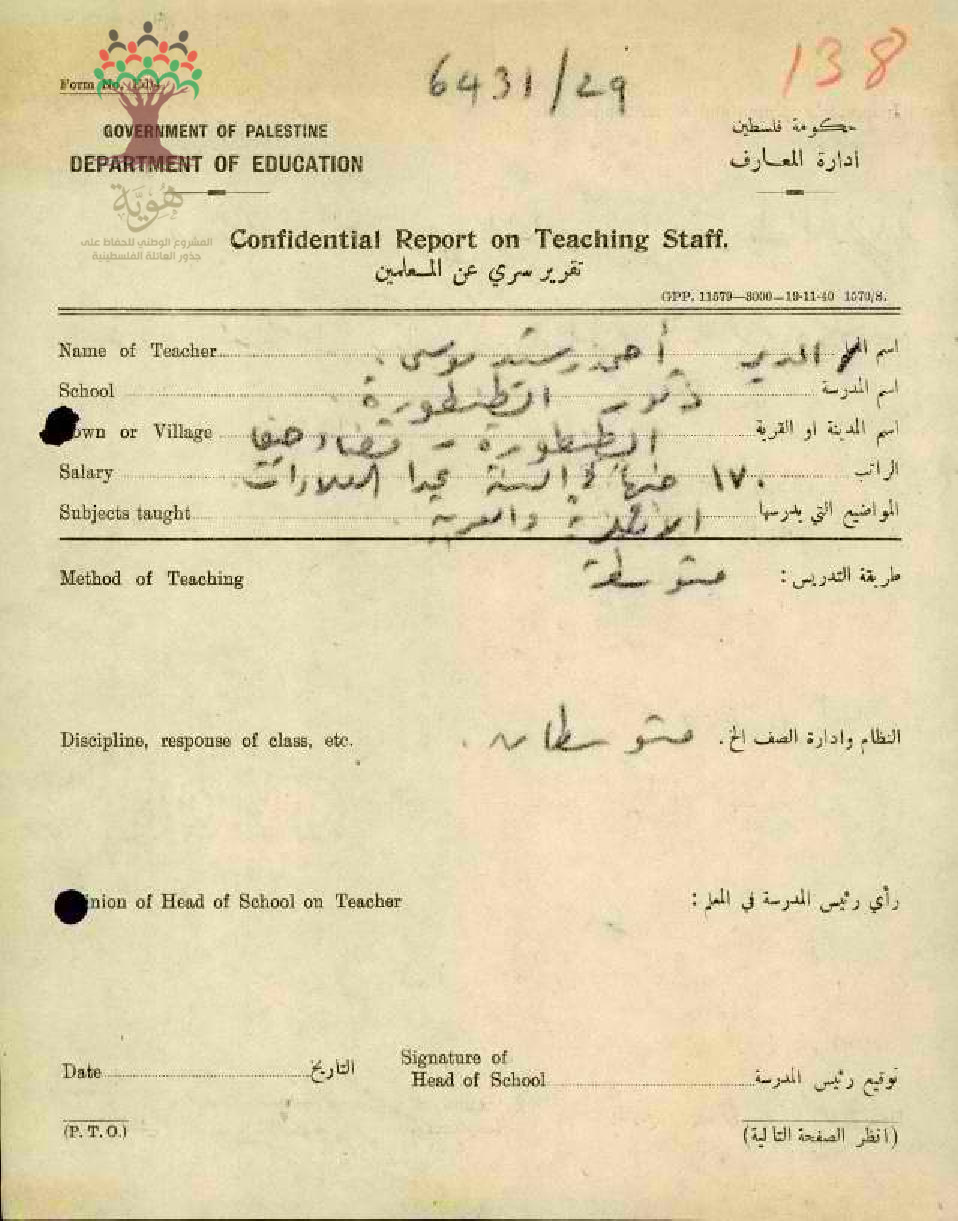 138
6431/29
Form No.
GOVERNMENT OF PALESTINE
حكومة فلسطين
DEPARTMENT OF EDUCATION
ادارة المعارف
هُوِيَّة
المشروع الوطني للحفاظ على
جذور العائلة الفلسطينية
Confidential Report on Teaching Staff.
تقرير سري عن المعلمين
GPP. 11579—8000—19-11-40 1570/S.
Name of Teacher أحمد رشيد موسى . المدير اسم
School ذكور الطنطورة اسم المدرسة
own or Village الطنطورة - قضاء حيفا اسم المدينة او القرية
Salary ١٧٠ جنيها في السنة عدا العلاوات الراتب
Subjects taught الانكليزية والعربية المواضيع التي يدرسها
Method of Teaching متوسطة طريقة التدريس :
Discipline, response of class, etc. متوسطان . النظام وادارة الصف الخ.
inion of Head of School on Teacher رأي رئيس المدرسة في المعلم :
Date التاريخ Signature of
Head of School توقيع رئيس المدرسة
(P. T. O.) (انظر الصفحة التالية)